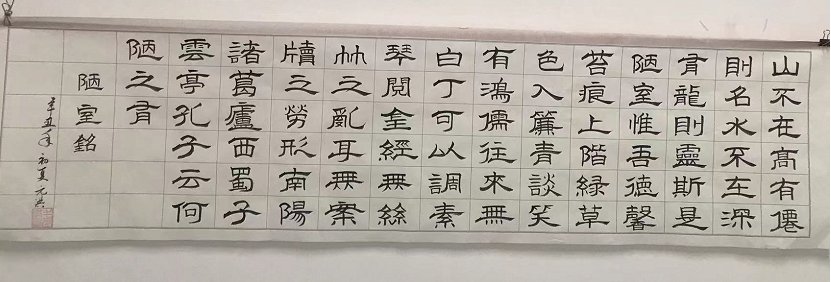 山不在高有僊
則名水不在深
有龍則靈斯是
陋室惟吾德馨
苔痕上階緑草
色入簾青談笑
有鴻儒往來無
白丁可以調素
琴閱金經無絲
竹之亂耳無案
牘之勞形南陽
諸葛廬西蜀子
雲亭孔子云何
陋之有
陋室銘
辛丑年初夏元